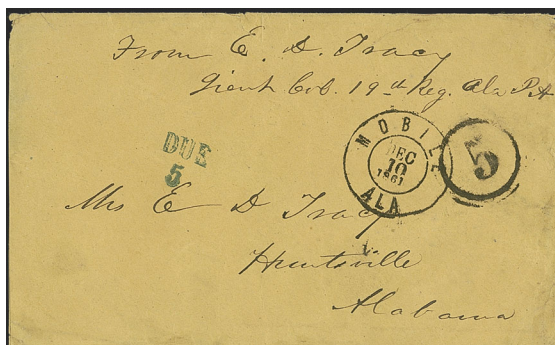 From E. D. Tracy
Lieut Col. 19th Reg. Ala
DUE
5
MOBILE
DEC
10
1861
ALA
5
Mrs E D Tracy
Huntsville
Alabama